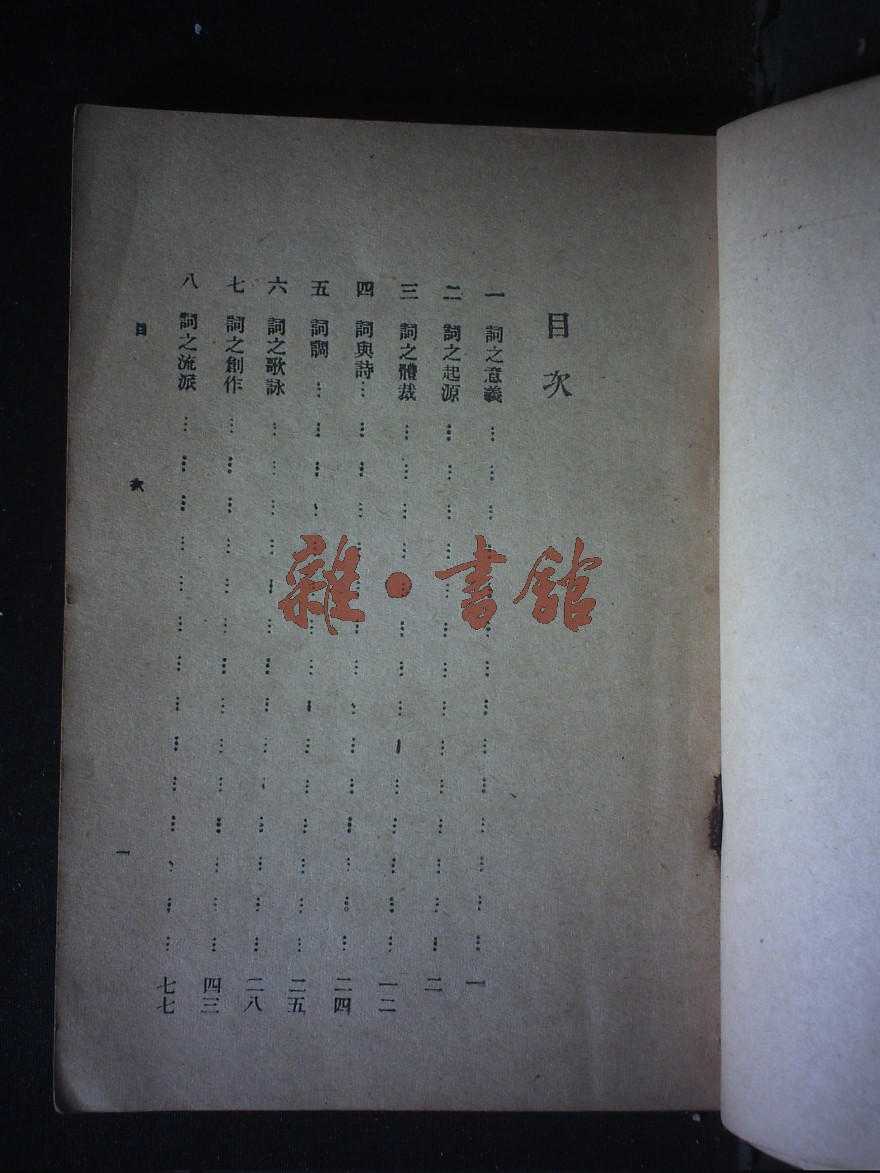 目次
一 詞之意義 一
二 詞之起源 二
三 詞之體裁 一二
四 詞與詩 二四
五 詞調 二五
六 詞之歌詠 二八
七 詞之創作 四三
八 詞之流派 七七
目 次 一
雜·書館